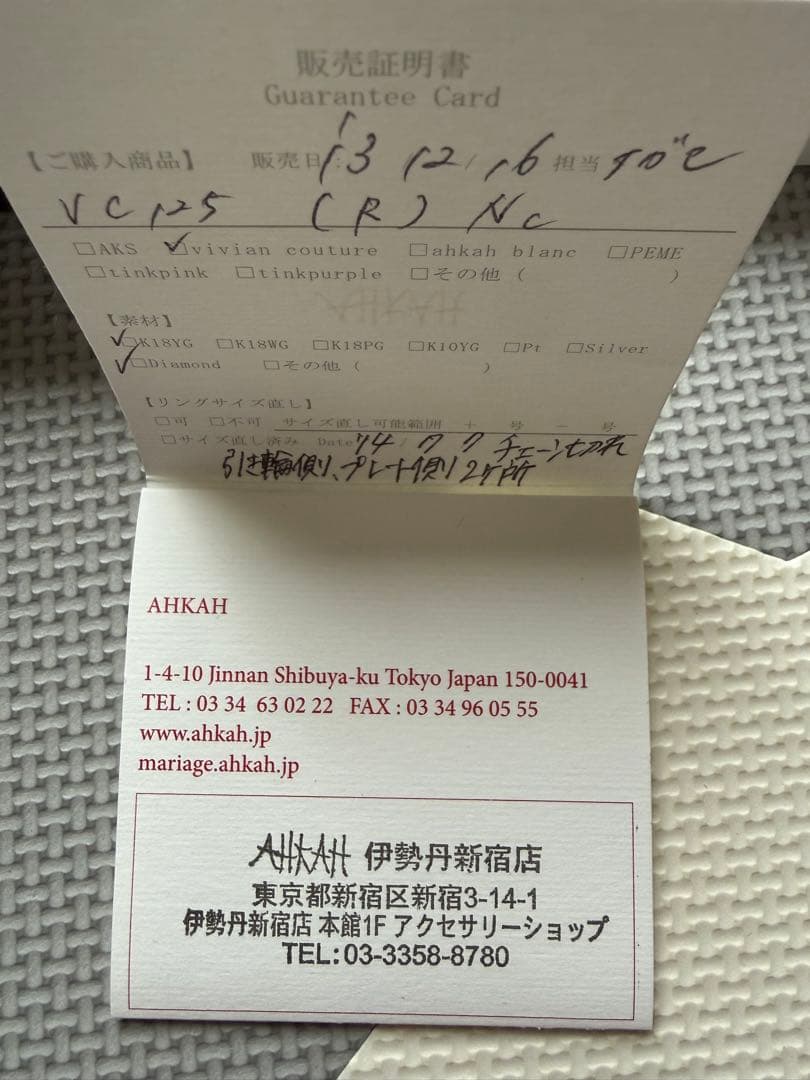 販売証明書
Guarantee Card
【ご購入商品】 販売日: '13 12/16 担当
VC125 (R) Nc
□AKS ☑vivian couture □ahkah blanc □PEME
□tinkpink □tinkpurple □その他 ( )
【素材】
☑K18YG □K18WG □K18PG □K10YG □Pt □Silver
☑Diamond □その他 ( )
【リングサイズ直し】
□可 □不可 サイズ直し可能範囲 + 号 - 号
□サイズ直し済み Date '14/7 7 チェーン切れ
引き輪側り、プレート側り 2ケ所
AHKAH
1-4-10 Jinnan Shibuya-ku Tokyo Japan 150-0041
TEL : 03 34 63 02 22 FAX : 03 34 96 05 55
www.ahkah.jp
mariage.ahkah.jp
AHKAH 伊勢丹新宿店
東京都新宿区新宿3-14-1
伊勢丹新宿店 本館1F アクセサリーショップ
TEL:03-3358-8780